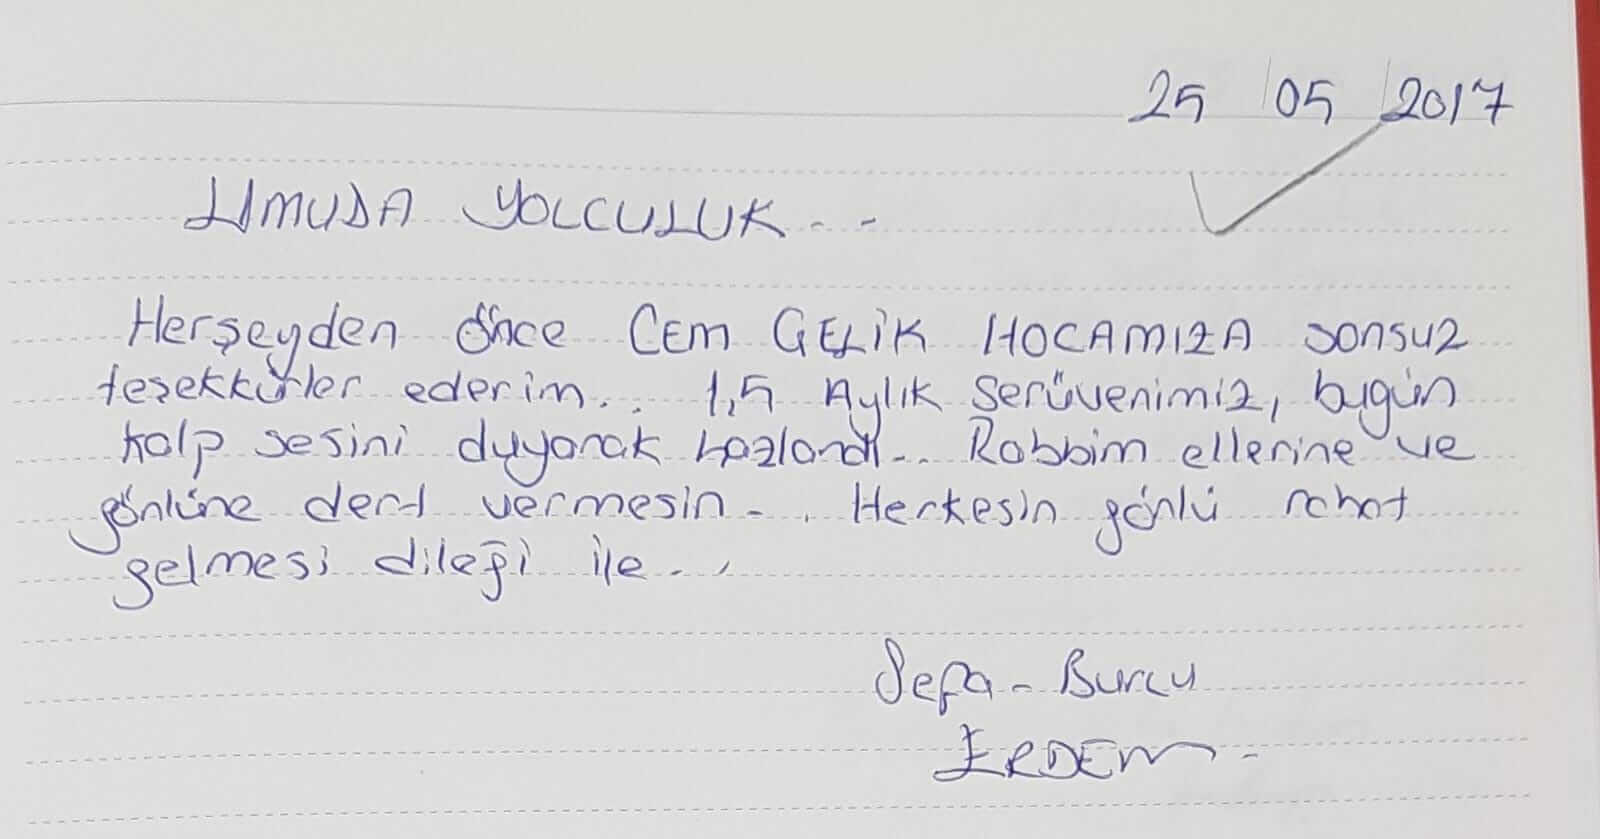 25 05 2017
UMUDA YOLCULUK..
Herşeyden önce CEM ÇELİK HOCAMIZA sonsuz
teşekkürler ederim.. 1,5 Aylık serüvenimiz, bugün
kalp sesini duyarak hazlandı.. Rabbim ellerine ve
gönlüne dert vermesin.. Herkesin gönlü rahat
gelmesi dileği ile..
Sefa - Burcu
ERDEM